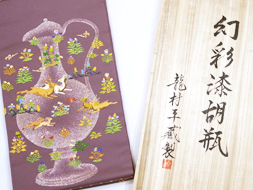 幻彩漆胡瓶
龍村平蔵製